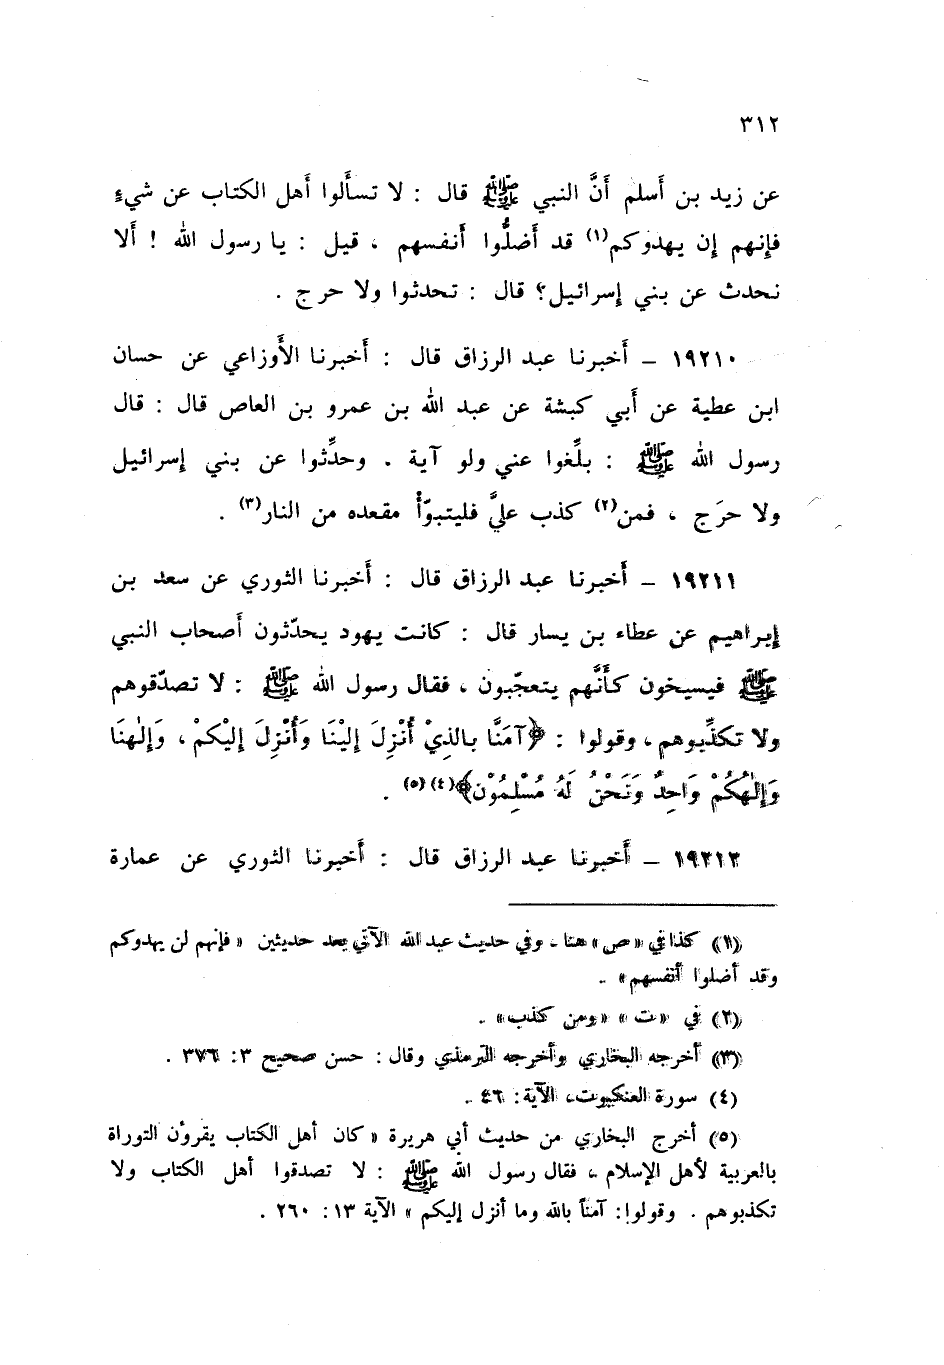 ٣١٢
عن زيد بن أسلم أنَّ النبي ﷺ قال : لا تسألوا أهل الكتاب عن شيءٍ
فإنهم إن يهدوكم(١) قد أضلُّوا أنفسهم ، قيل : يا رسول الله ! ألا
نحدث عن بني إسرائيل؟ قال : تحدثوا ولا حرج .
١٩٢١٠ – أخبرنا عبد الرزاق قال : أخبرنا الأوزاعي عن حسان
ابن عطية عن أبي كبشة عن عبد الله بن عمرو بن العاص قال : قال
رسول الله ﷺ : بلِّغوا عني ولو آية . وحدِّثوا عن بني إسرائيل
ولا حرَج ، فمن(٢) كذب عليَّ فليتبوّأْ مقعده من النار(٣) .
١٩٢١١ – أخبرنا عبد الرزاق قال : أخبرنا الثوري عن سعد بن
إبراهيم عن عطاء بن يسار قال : كانت يهود يحدّثون أصحاب النبي
ﷺ فيسيخون كأنَّهم يتعجّبون ، فقال رسول الله ﷺ : لا تصدّقوهم
ولا تكذِّبوهم ، وقولوا : ﴿آمَنَّا بِالذِيْ أُنْزِلَ إِلَيْنَا وَأُنْزِلَ إِلَيْكمْ ، وَإِلٰهنَا
وَإِلٰهُكُمْ وَاحِدٌ وَنَحْنُ لَهُ مُسْلِمُوْن﴾(٤)(٥) .
١٩٢١٢ – أخبرنا عبد الرزاق قال : أخبرنا الثوري عن عمارة
(١) كذا في «ص» هنا ، وفي حديث عبد الله الآتي بعد حديثين « فإنهم لن يهدوكم
وقد أضلوا أنفسهم» .
(٢) في «ت» «ومن كذب» .
(٣) أخرجه البخاري وأخرجه الترمذي وقال : حسن صحيح ٣: ٣٧٦ .
(٤) سورة العنكبوت، الآية: ٤٦ .
(٥) أخرج البخاري من حديث أبي هريرة « كان أهل الكتاب يقرؤن التوراة
بالعربية لأهل الإسلام ، فقال رسول الله ﷺ : لا تصدقوا أهل الكتاب ولا
تكذبوهم . وقولوا: آمناً بالله وما أنزل إليكم » الآية ١٣: ٢٦٠ .